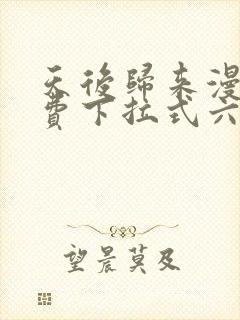 天後歸來漫
費下拉式六
望晨莫及